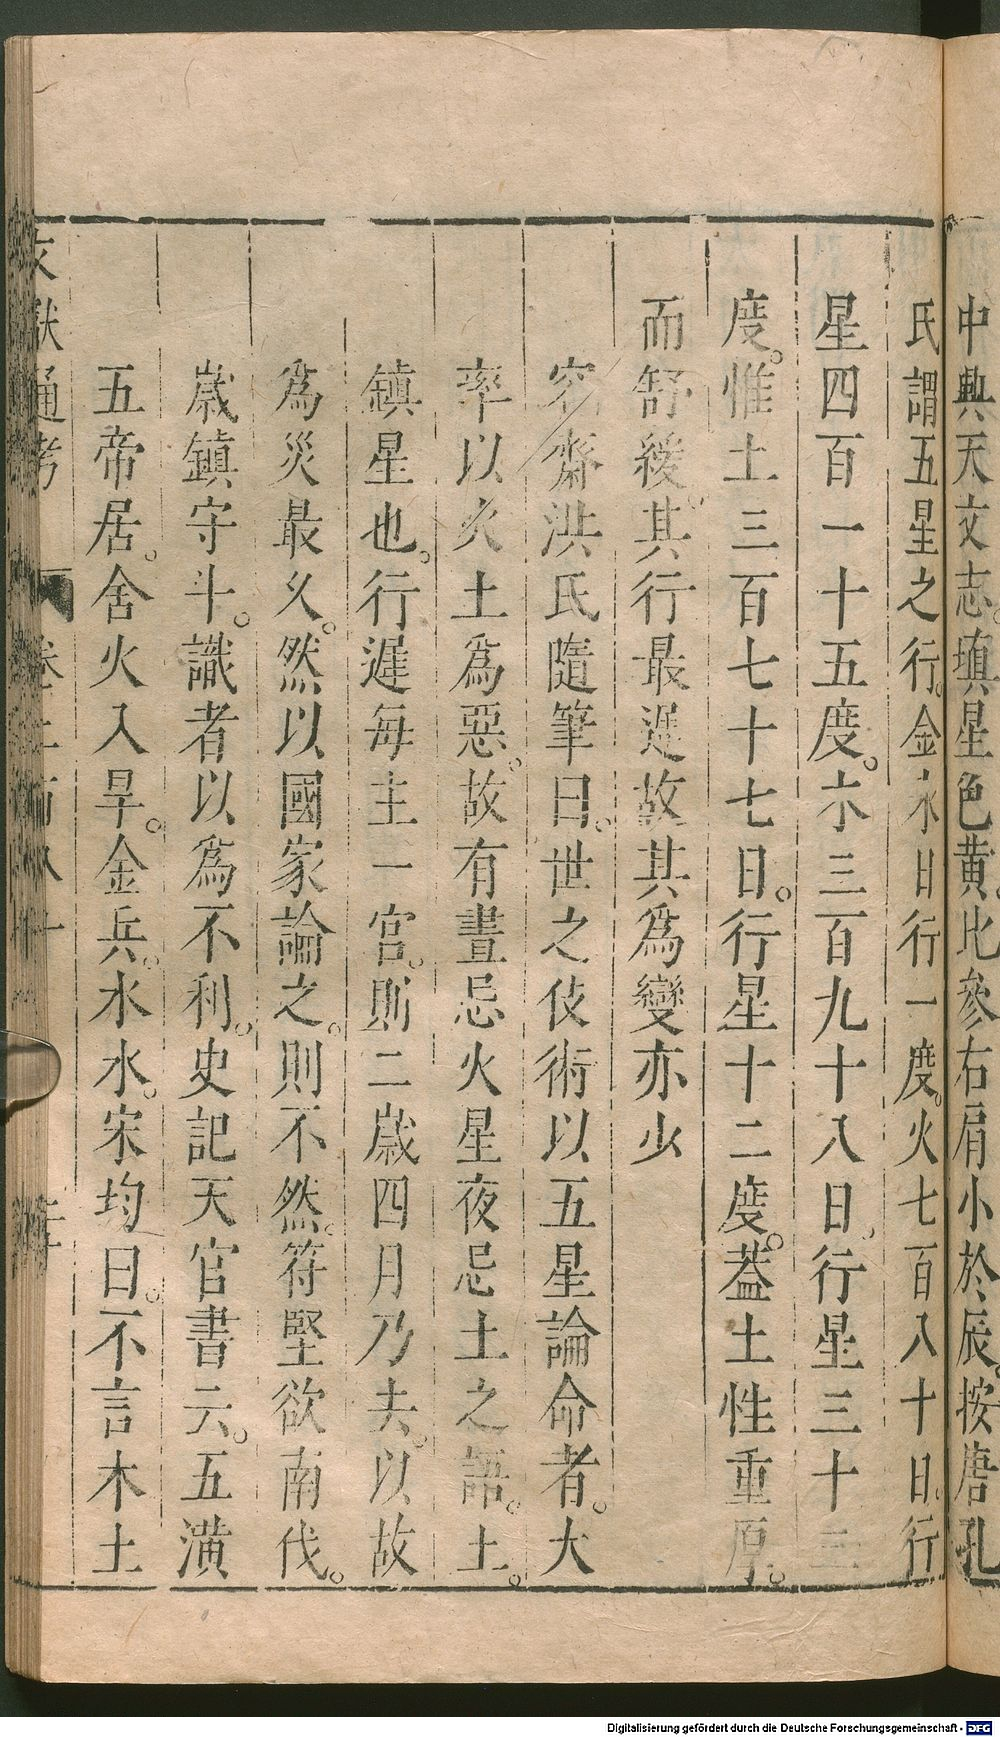 中興天文志塡星色黃比參右肩小於辰按唐孔
氏謂五星之行金水日行一度火七百八十日行
星四百一十五度木三百九十八日行星三十三
度惟土三百七十七日行星十二度葢土性重厚
而舒緩其行最遲故其爲變亦少
容齋洪氏隨筆曰世之伎術以五星論命者大
率以火土爲惡故有晝忌火星夜忌土之語土
鎮星也行遲每主一宮則二歲四月乃去以故
爲災最久然以國家論之則不然符堅欲南伐
歲鎮守斗識者以爲不利史記天官書云五潢
五帝居舍火入旱金兵水水宋均曰不言木土
文獻通考
Digitalisierung gefördert durch die Deutsche Forschungsgemeinschaft - DFG